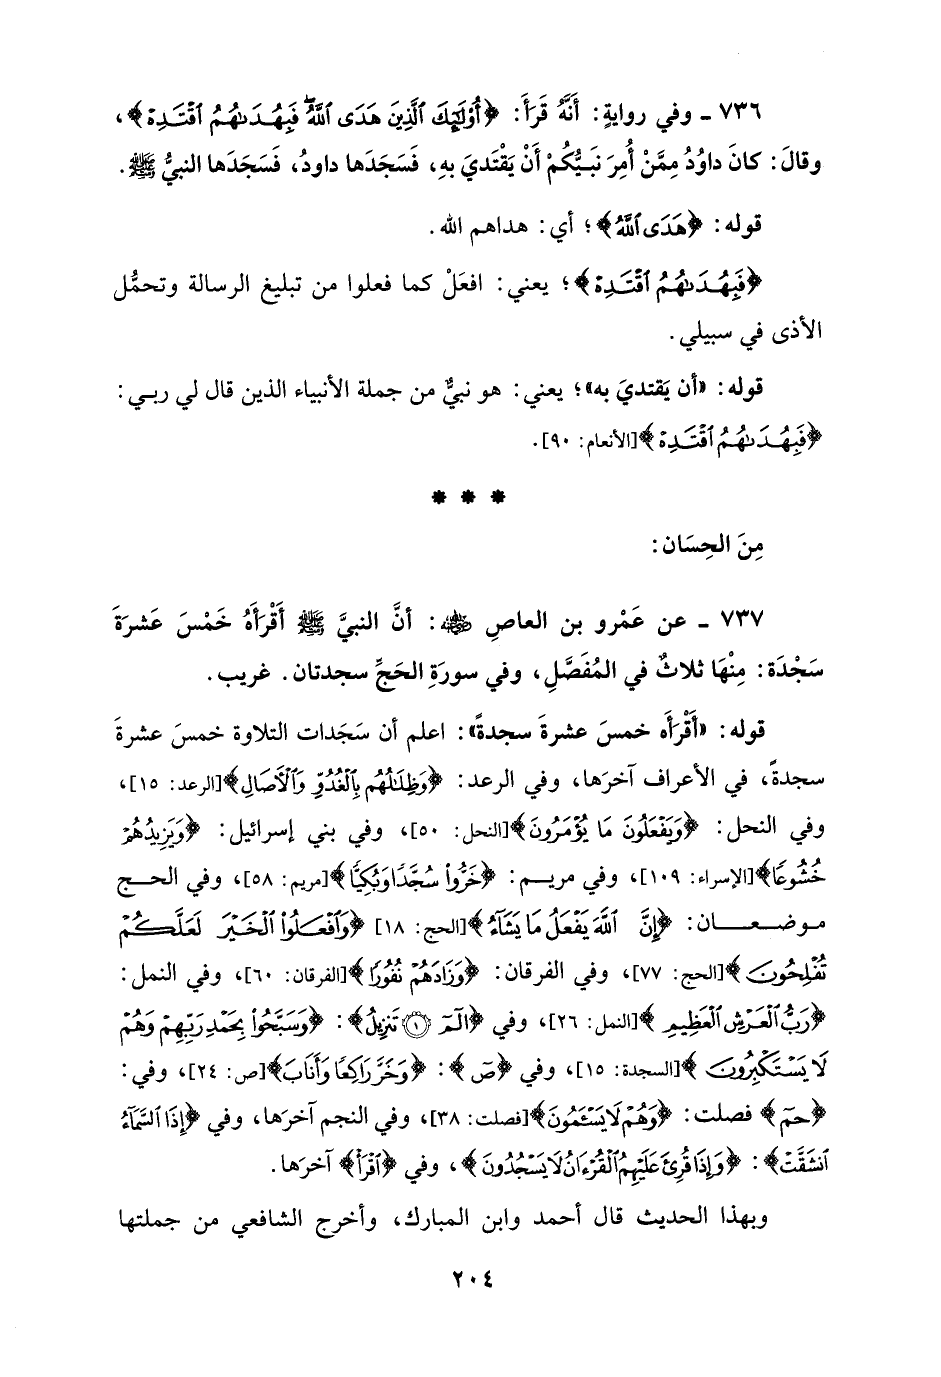 ٧٣٦ ـ وفي روايةٍ: أَنَّهُ قَرَأَ: ﴿أُوْلَٰٓئِكَ ٱلَّذِينَ هَدَى ٱللَّهُۖ فَبِهُدَىٰهُمُ ٱقْتَدِهْ﴾،
وقالَ: كانَ داوُدُ مِمَّنْ أُمِرَ نَبيُّكُمْ أَنْ يَقْتَديَ بهِ، فَسَجَدَها داودُ، فَسَجَدَها النبيُّ ﷺ.
قوله: ﴿هَدَى ٱللَّهُ﴾؛ أي: هداهم الله.
﴿فَبِهُدَىٰهُمُ ٱقْتَدِهْ﴾؛ يعني: افعَلْ كما فعلوا من تبليغ الرسالة وتحمُّل
الأذى في سبيلي.
قوله: «أن يَقتديَ به»؛ يعني: هو نبيٌّ من جملة الأنبياء الذين قال لي ربـي:
﴿فَبِهُدَىٰهُمُ ٱقْتَدِهْ﴾[الأنعام: ٩٠].
* * *
مِنَ الحِسَان:
٧٣٧ ـ عن عَمْرو بن العاصِ ﷺ: أنَّ النبيَّ ﷺ أَقْرَأَهُ خَمْسَ عَشرَةَ
سَجْدَة: مِنْهَا ثلاثٌ في المُفَصَّلِ، وفي سورَةِ الحَجِّ سجدتان. غريب.
قوله: «أَقْرَأَه خمسَ عشرةَ سجدةً»: اعلم أن سَجَدات التلاوة خمسَ عشرةَ
سجدةً، في الأعراف آخرَها، وفي الرعد: ﴿وَظِلَٰلُهُم بِٱلْغُدُوِّ وَٱلْأَصَالِ﴾[الرعد: ١٥]،
وفي النحل: ﴿وَيَفْعَلُونَ مَا يُؤْمَرُونَ﴾[النحل: ٥٠]، وفي بني إسرائيل: ﴿وَيَزِيدُهُمْ
خُشُوعًا﴾[الإسراء: ١٠٩]، وفي مريـم: ﴿خَرُّواْ سُجَّدًا وَبُكِيًّا﴾[مريم: ٥٨]، وفي الحـج
موضـعـان: ﴿إِنَّ ٱللَّهَ يَفْعَلُ مَا يَشَآءُ﴾[الحج: ١٨] ﴿وَٱفْعَلُواْ ٱلْخَيْرَ لَعَلَّكُمْ
تُفْلِحُونَ﴾[الحج: ٧٧]، وفي الفرقان: ﴿وَزَادَهُمْ نُفُورًا﴾[الفرقان: ٦٠]، وفي النمل:
﴿رَبُّ ٱلْعَرْشِ ٱلْعَظِيمِ﴾[النمل: ٢٦]، وفي ﴿الٓمٓ ۝١ تَنزِيلُ﴾: ﴿وَسَبَّحُواْ بِحَمْدِ رَبِّهِمْ وَهُمْ
لَا يَسْتَكْبِرُونَ﴾[السجدة: ١٥]، وفي ﴿صٓ﴾: ﴿وَخَرَّ رَاكِعًا وَأَنَابَ﴾[ص: ٢٤]، وفي:
﴿حمٓ﴾ فصلت: ﴿وَهُمْ لَا يَسْـَٔمُونَ﴾[فصلت: ٣٨]، وفي النجم آخرَها، وفي ﴿إِذَا ٱلسَّمَآءُ
ٱنشَقَّتْ﴾: ﴿وَإِذَا قُرِئَ عَلَيْهِمُ ٱلْقُرْءَانُ لَا يَسْجُدُونَ﴾، وفي ﴿ٱقْرَأْ﴾ آخرَها.
وبهذا الحديث قال أحمد وابن المبارك، وأخرج الشافعي من جملتها
٢٠٤